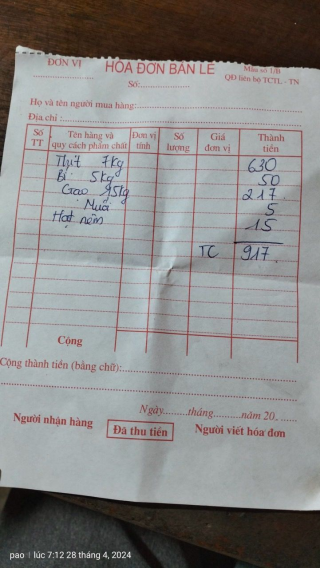 ĐƠN VỊ HÓA ĐƠN BÁN LẺ Mẫu số 1/B
Số: QĐ liên bộ TCTL - TN
Họ và tên người mua hàng:
Địa chỉ :
Số TT Tên hàng và quy cách phẩm chất Đơn vị tính Số lượng Giá đơn vị Thành tiền
Thịt 7kg 630
Bí 5kg 50
Gạo 95kg 217
Muối 5
Hạt nêm 15
TC 917
Cộng
Cộng thành tiền (bằng chữ):
Ngày tháng năm 20
Người nhận hàng Đã thu tiền Người viết hóa đơn
pao | lúc 7:12 28 tháng 4, 2024